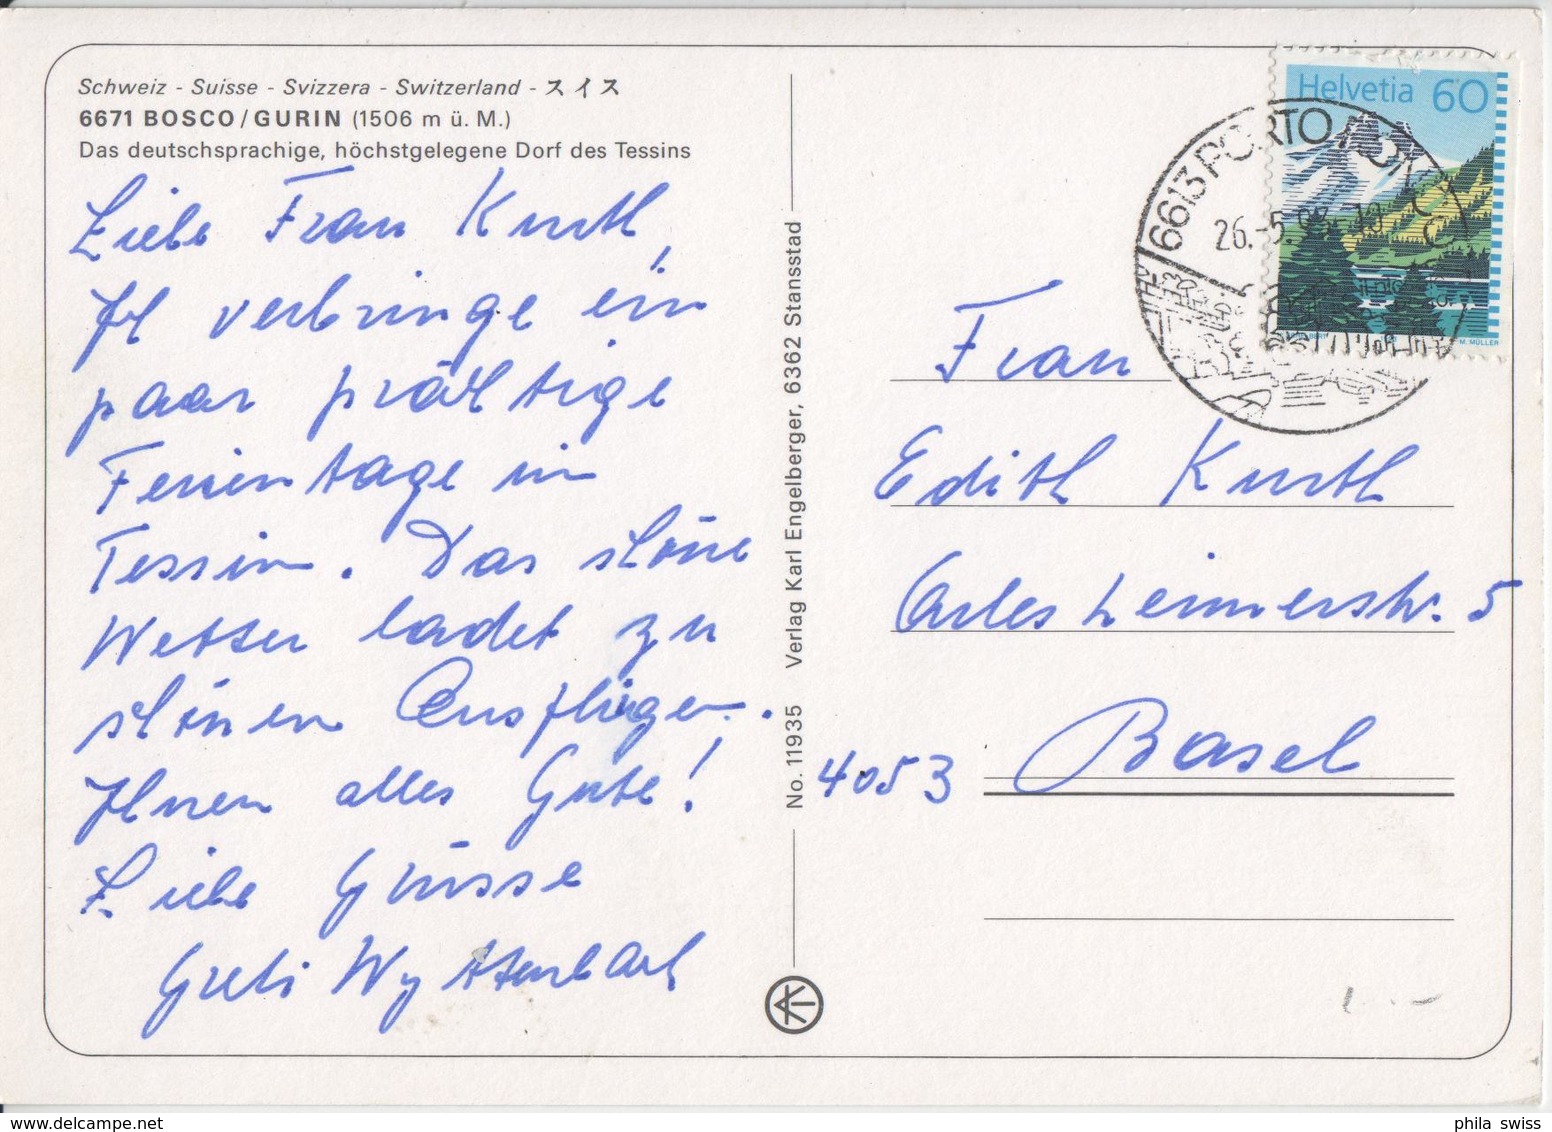 Schweiz - Suisse - Svizzera - Switzerland - スイス
6671 BOSCO/GURIN (1506 m ü. M.)
Das deutschsprachige, höchstgelegene Dorf des Tessins
Liebe Frau Kurth,
Ich verbringe ein
paar prächtige
Ferientage im
Tessin. Das schöne
Wetter ladet zu
schönen Ausflügen.
Ihnen alles Gute!
Liebe Grüsse
Greti Wyttenbach
No. 11935 Verlag Karl Engelberger, 6362 Stansstad
Helvetia 60
M. MÜLLER
6613 PORTO RONCO
26.-5.
Frau
Edith Kurth
Arlesheimerstr. 5
4053 Basel
phila swiss